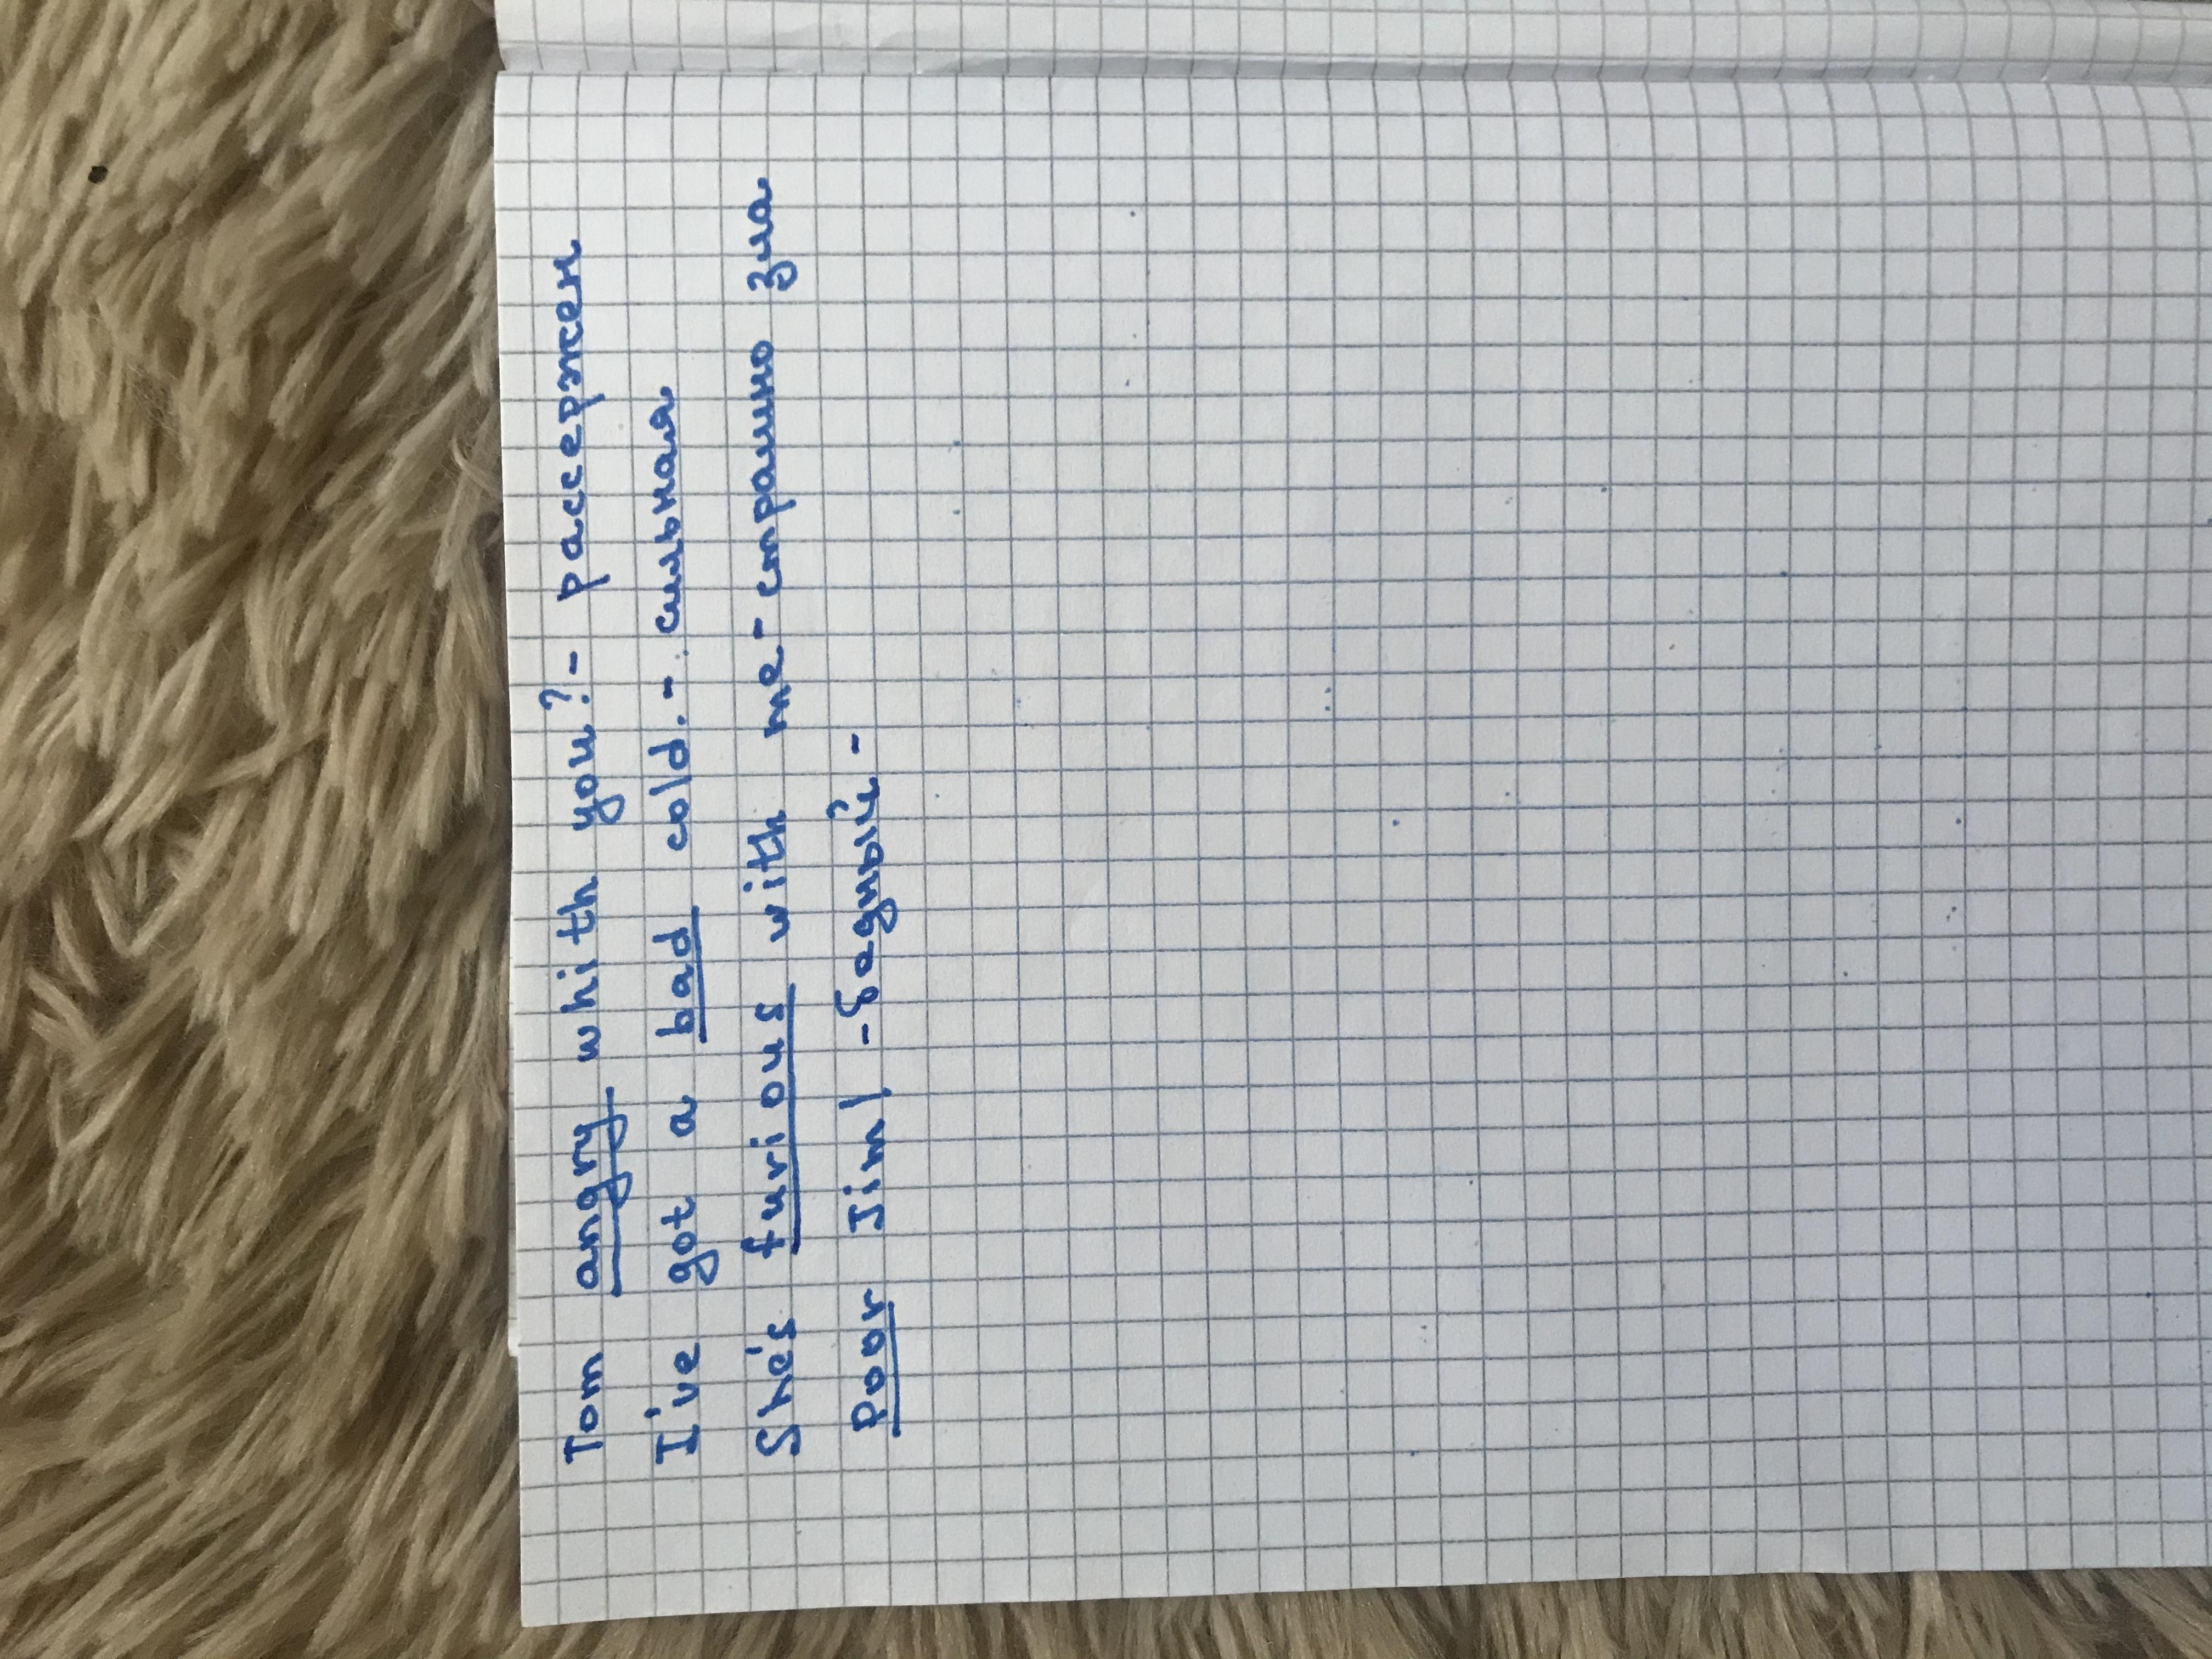 Tom angry whith you? - рассержен
I've got a bad cold. - сильная
She's furious with me - страшно зла
Poor Jim! - бедный -